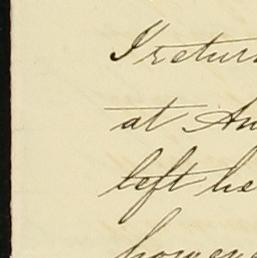 I return
at An
left he
however